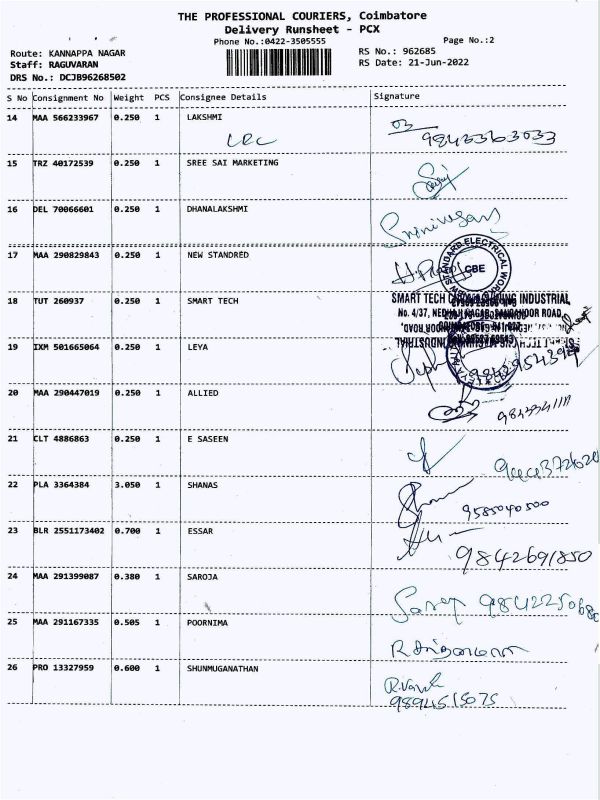 THE PROFESSIONAL COURIERS, Coimbatore
Delivery Runsheet - PCX
Phone No.:0422-3505555
Page No.:2
Route: KANNAPPA NAGAR
RS No.: 962685
Staff: RAGUVARAN
RS Date: 21-Jun-2022
DRS No.: DCJB96268502
S No Consignment No Weight PCS Consignee Details Signature
14 MAA 566233967 0.250 1 LAKSHMI
15 TRZ 40172539 0.250 1 SREE SAI MARKETING
16 DEL 70066601 0.250 1 DHANALAKSHMI
Srinivasan
17 MAA 290829843 0.250 1 NEW STANDRED
CBE
18 TUT 260937 0.250 1 SMART TECH
SMART TECH INDUSTRIAL
No. 4/37, NEHRU NAGAR, SANGANOOR ROAD,
19 IXM 501665064 0.250 1 LEYA
20 MAA 290447019 0.250 1 ALLIED
21 CLT 4886863 0.250 1 E SASEEN
22 PLA 3364384 3.050 1 SHANAS
9585040500
23 BLR 2551173402 0.700 1 ESSAR
9842691850
24 MAA 291399087 0.380 1 SAROJA
Saroj 9842250680
25 MAA 291167335 0.505 1 POORNIMA
26 PRO 13327959 0.600 1 SHUNMUGANATHAN
9894515075